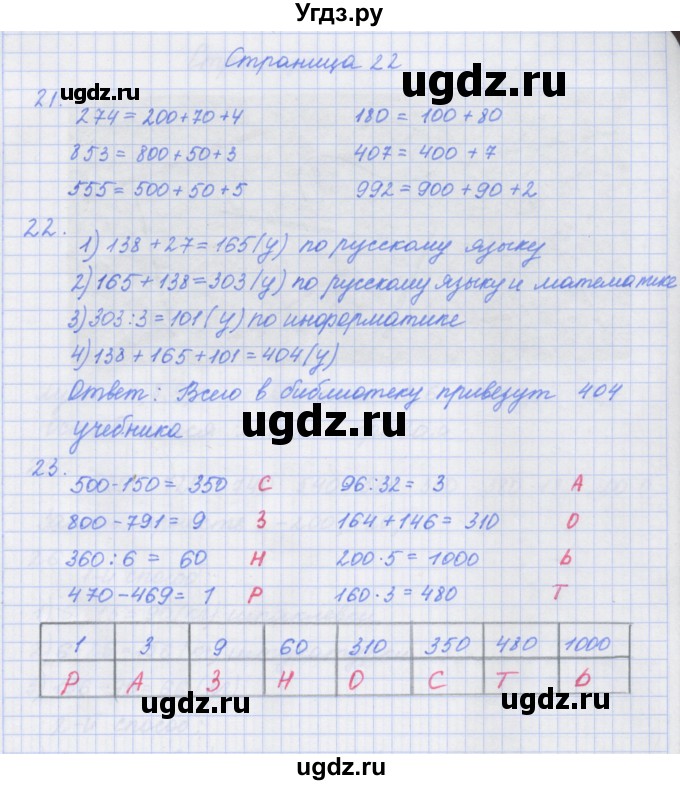 Угдз.ру
Страница 22
21.
274 = 200+70+4   180 = 100+80
853 = 800+50+3   407 = 400+7
555 = 500+50+5   992 = 900+90+2
22.
1) 138+27=165(у) по русскому языку
2) 165+138=303(у) по русскому языку и математике
3) 303:3=101(у) по информатике
4) 138+165+101=404(у)
Ответ: Всего в библиотеку привезут 404
учебника
23.
500-150= 350 С   96:32= 3 А
800-791= 9 З   164+146=310 О
360:6= 60 Н   200·5=1000 Ь
470-469= 1 Р   160·3=480 Т
1 3 9 60 310 350 480 1000
Р А З Н О С Т Ь
ugdz.ru
ugdz.ru
ugdz.ru
ugdz.ru
ugdz.ru
ugdz.ru
ugdz.ru
ugdz.ru
ugdz.ru
ugdz.ru
ugdz.ru